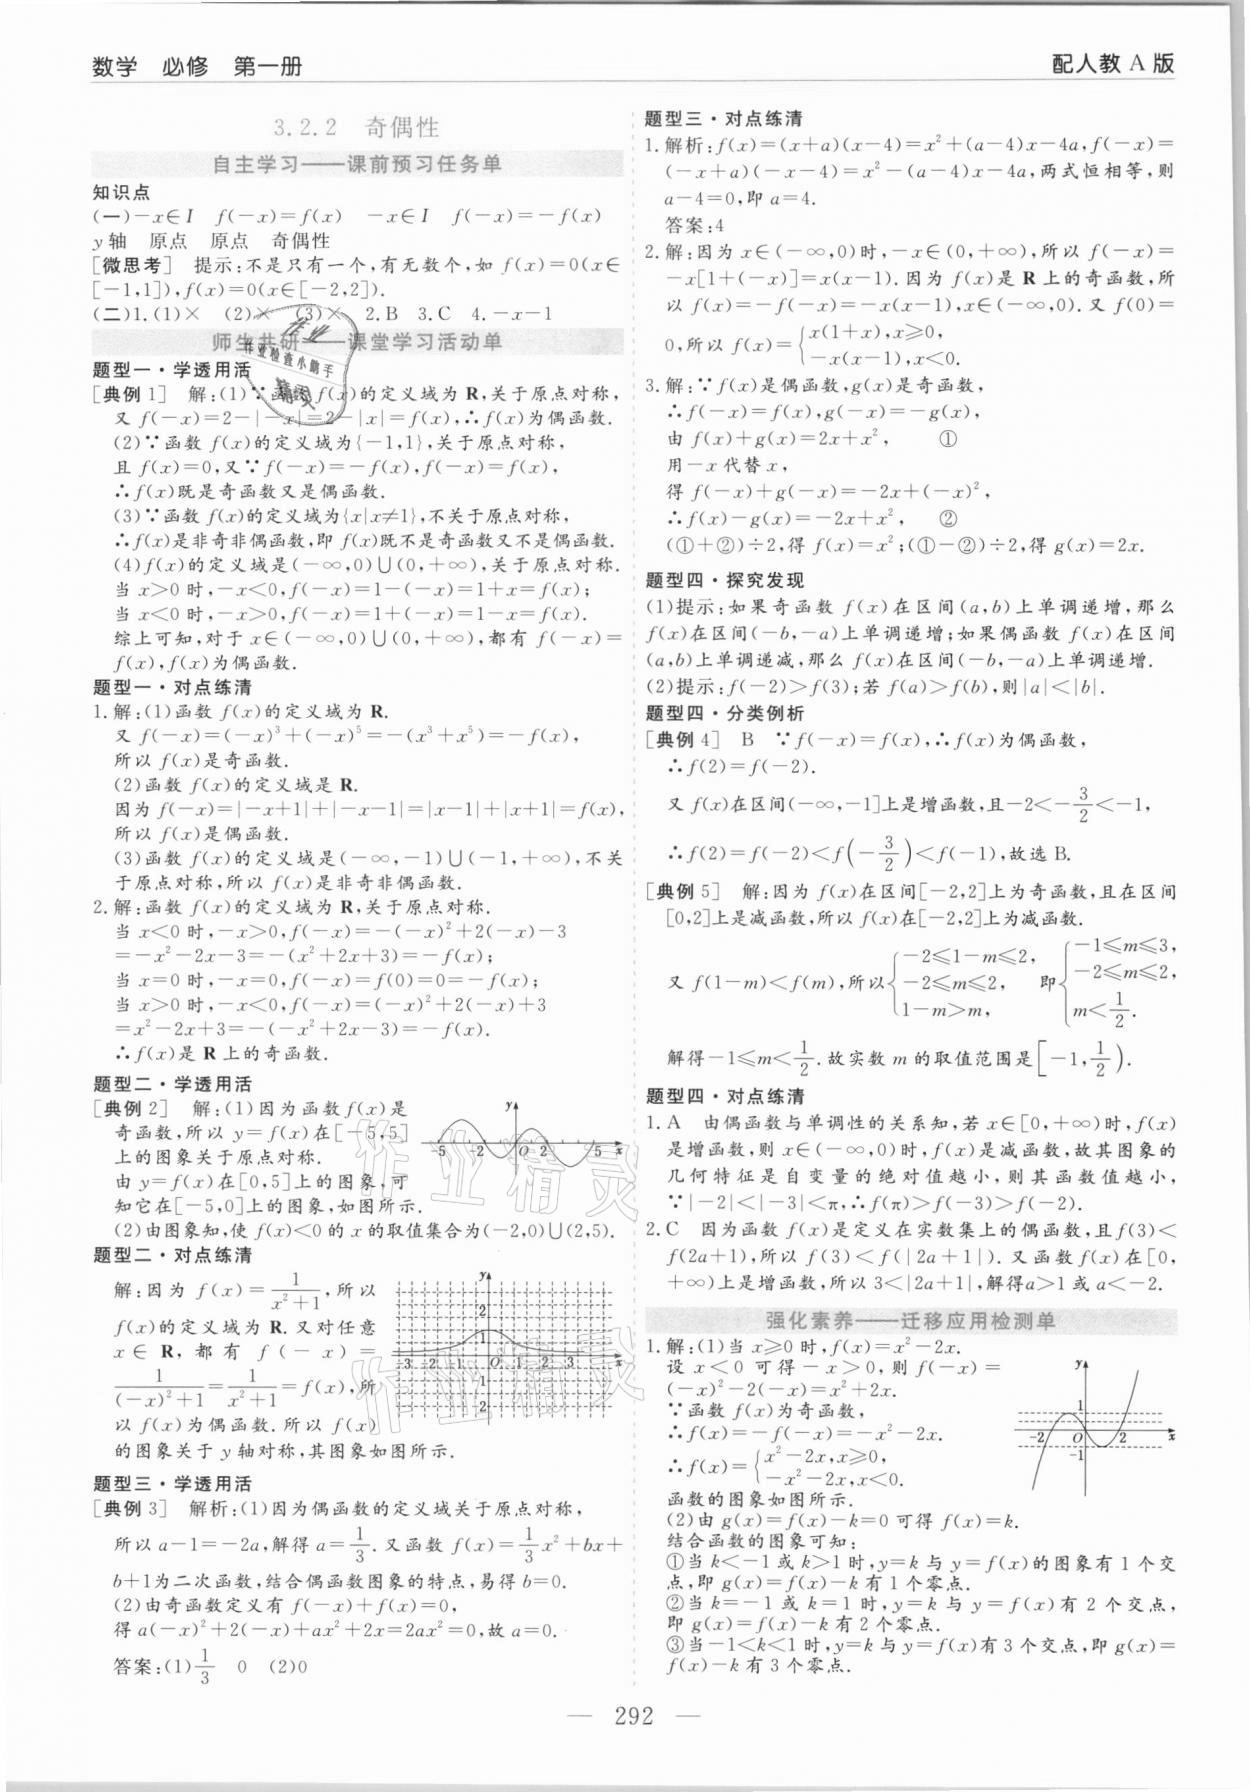 数学　必修　第一册
配人教 A 版
3.2.2　奇偶性
自主学习——课前预习任务单
知识点
(一)－x∈I　f(－x)＝f(x)　－x∈I　f(－x)＝－f(x)
y 轴　原点　原点　奇偶性
[微思考]　提示:不是只有一个,有无数个,如 f(x)＝0(x∈
[－1,1]),f(x)＝0(x∈[－2,2]).
(二)1.(1)×　(2)×　(3)×　2.B　3.C　4.－x－1
师生共研——课堂学习活动单
题型一·学透用活
[典例 1]　解:(1)∵函数 f(x)的定义域为 R,关于原点对称,
又 f(－x)＝2－|－x|＝2－|x|＝f(x),∴f(x)为偶函数.
(2)∵函数 f(x)的定义域为{－1,1},关于原点对称,
且 f(x)＝0,又∵f(－x)＝－f(x),f(－x)＝f(x),
∴f(x)既是奇函数又是偶函数.
(3)∵函数 f(x)的定义域为{x|x≠1},不关于原点对称,
∴f(x)是非奇非偶函数,即 f(x)既不是奇函数又不是偶函数.
(4)f(x)的定义域是(－∞,0)∪(0,＋∞),关于原点对称.
当 x＞0 时,－x＜0,f(－x)＝1－(－x)＝1＋x＝f(x);
当 x＜0 时,－x＞0,f(－x)＝1＋(－x)＝1－x＝f(x).
综上可知,对于 x∈(－∞,0)∪(0,＋∞),都有 f(－x)＝
f(x),f(x)为偶函数.
题型一·对点练清
1.解:(1)函数 f(x)的定义域为 R.
又 f(－x)＝(－x)³＋(－x)⁵＝－(x³＋x⁵)＝－f(x),
所以 f(x)是奇函数.
(2)函数 f(x)的定义域是 R.
因为 f(－x)＝|－x＋1|＋|－x－1|＝|x－1|＋|x＋1|＝f(x),
所以 f(x)是偶函数.
(3)函数 f(x)的定义域是(－∞,－1)∪(－1,＋∞),不关
于原点对称,所以 f(x)是非奇非偶函数.
2.解:函数 f(x)的定义域为 R,关于原点对称.
当 x＜0 时,－x＞0,f(－x)＝－(－x)²＋2(－x)－3
＝－x²－2x－3＝－(x²＋2x＋3)＝－f(x);
当 x＝0 时,－x＝0,f(－x)＝f(0)＝0＝－f(x);
当 x＞0 时,－x＜0,f(－x)＝(－x)²＋2(－x)＋3
＝x²－2x＋3＝－(－x²＋2x－3)＝－f(x).
∴f(x)是 R 上的奇函数.
题型二·学透用活
[典例 2]　解:(1)因为函数 f(x)是
奇函数,所以 y＝f(x)在[－5,5]
上的图象关于原点对称.
由 y＝f(x)在[0,5]上的图象,可
知它在[－5,0]上的图象,如图所示.
y
－5　－2　O　2　5　x
(2)由图象知,使 f(x)＜0 的 x 的取值集合为(－2,0)∪(2,5).
题型二·对点练清
解:因为 f(x)＝1/(x²＋1),所以
f(x)的定义域为 R.又对任意
x∈R,都有 f(－x)＝
1/((－x)²＋1)＝1/(x²＋1)＝f(x),所
以 f(x)为偶函数.所以 f(x)
的图象关于 y 轴对称,其图象如图所示.
y
2
1
－3　－2　－1　O　1　2　3　x
1
2
题型三·学透用活
[典例 3]　解析:(1)因为偶函数的定义域关于原点对称,
所以 a－1＝－2a,解得 a＝1/3.又函数 f(x)＝1/3x²＋bx＋
b＋1为二次函数,结合偶函数图象的特点,易得 b＝0.
(2)由奇函数定义有 f(－x)＋f(x)＝0,
得 a(－x)²＋2(－x)＋ax²＋2x＝2ax²＝0,故 a＝0.
答案:(1)1/3　0　(2)0
题型三·对点练清
1.解析:f(x)＝(x＋a)(x－4)＝x²＋(a－4)x－4a,f(－x)＝
(－x＋a)(－x－4)＝x²－(a－4)x－4a,两式恒相等,则
a－4＝0,即 a＝4.
答案:4
2.解:因为 x∈(－∞,0)时,－x∈(0,＋∞),所以 f(－x)＝
－x[1＋(－x)]＝x(x－1).因为 f(x)是 R 上的奇函数,所
以 f(x)＝－f(－x)＝－x(x－1),x∈(－∞,0).又 f(0)＝
0,所以 f(x)＝{x(1＋x),x≥0,
－x(x－1),x＜0.
3.解:∵f(x)是偶函数,g(x)是奇函数,
∴f(－x)＝f(x),g(－x)＝－g(x),
由 f(x)＋g(x)＝2x＋x²,　①
用－x 代替 x,
得 f(－x)＋g(－x)＝－2x＋(－x)²,
∴f(x)－g(x)＝－2x＋x²,　②
(①＋②)÷2,得 f(x)＝x²;(①－②)÷2,得 g(x)＝2x.
题型四·探究发现
(1)提示:如果奇函数 f(x)在区间(a,b)上单调递增,那么
f(x)在区间(－b,－a)上单调递增;如果偶函数 f(x)在区间
(a,b)上单调递减,那么 f(x)在区间(－b,－a)上单调递增.
(2)提示:f(－2)＞f(3);若 f(a)＞f(b),则|a|＜|b|.
题型四·分类例析
[典例 4]　B　∵f(－x)＝f(x),∴f(x)为偶函数,
∴f(2)＝f(－2).
又 f(x)在区间(－∞,－1]上是增函数,且－2＜－3/2＜－1,
∴f(2)＝f(－2)＜f(－3/2)＜f(－1),故选 B.
[典例 5]　解:因为 f(x)在区间[－2,2]上为奇函数,且在区间
[0,2]上是减函数,所以 f(x)在[－2,2]上为减函数.
又 f(1－m)＜f(m),所以{－2≤1－m≤2,
－2≤m≤2,
1－m＞m,
即{－1≤m≤3,
－2≤m≤2,
m＜1/2.
解得－1≤m＜1/2.故实数 m 的取值范围是[－1,1/2).
题型四·对点练清
1.A　由偶函数与单调性的关系知,若 x∈[0,＋∞)时,f(x)
是增函数,则 x∈(－∞,0)时,f(x)是减函数,故其图象的
几何特征是自变量的绝对值越小,则其函数值越小,
∵|－2|＜|－3|＜π,∴f(π)＞f(－3)＞f(－2).
2.C　因为函数 f(x)是定义在实数集上的偶函数,且 f(3)＜
f(2a＋1),所以 f(3)＜f(|2a＋1|).又函数 f(x)在[0,
＋∞)上是增函数,所以 3＜|2a＋1|,解得a＞1 或 a＜－2.
强化素养——迁移应用检测单
1.解:(1)当 x≥0 时,f(x)＝x²－2x.
设 x＜0 可得－x＞0,则 f(－x)＝
(－x)²－2(－x)＝x²＋2x.
∵函数 f(x)为奇函数,
∴f(x)＝－f(－x)＝－x²－2x.
∴f(x)＝{x²－2x,x≥0,
－x²－2x,x＜0.
函数的图象如图所示.
y
1
－2　O　2　x
－1
(2)由 g(x)＝f(x)－k＝0 可得 f(x)＝k.
结合函数的图象可知:
①当 k＜－1 或 k＞1 时,y＝k 与 y＝f(x)的图象有 1 个交
点,即 g(x)＝f(x)－k 有 1 个零点.
②当 k＝－1 或 k＝1 时,y＝k 与 y＝f(x)有 2 个交点,
即 g(x)＝f(x)－k 有 2 个零点.
③当－1＜k＜1 时,y＝k 与 y＝f(x)有 3 个交点,即 g(x)＝
f(x)－k 有 3 个零点.
— 292 —
作业
作业检查小助手
精灵
作业精灵
作业精灵